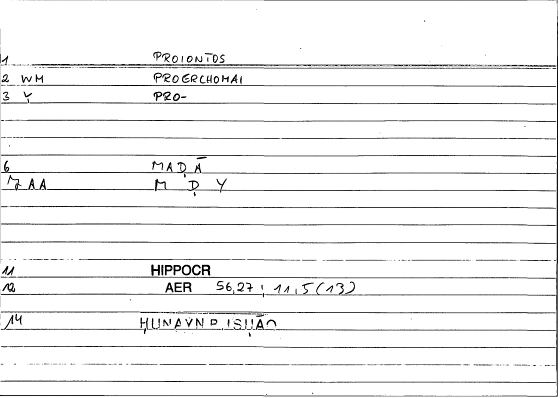 1 PROIONTOS
2 WM PROERCHOMAI
3 Y PRO-
6 MAḌĀ
7 AA M Ḍ Y
11 HIPPOCR
12 AER 56,27 ; 11,5 (13)
14 ḤUNAYN B ISḤĀQ